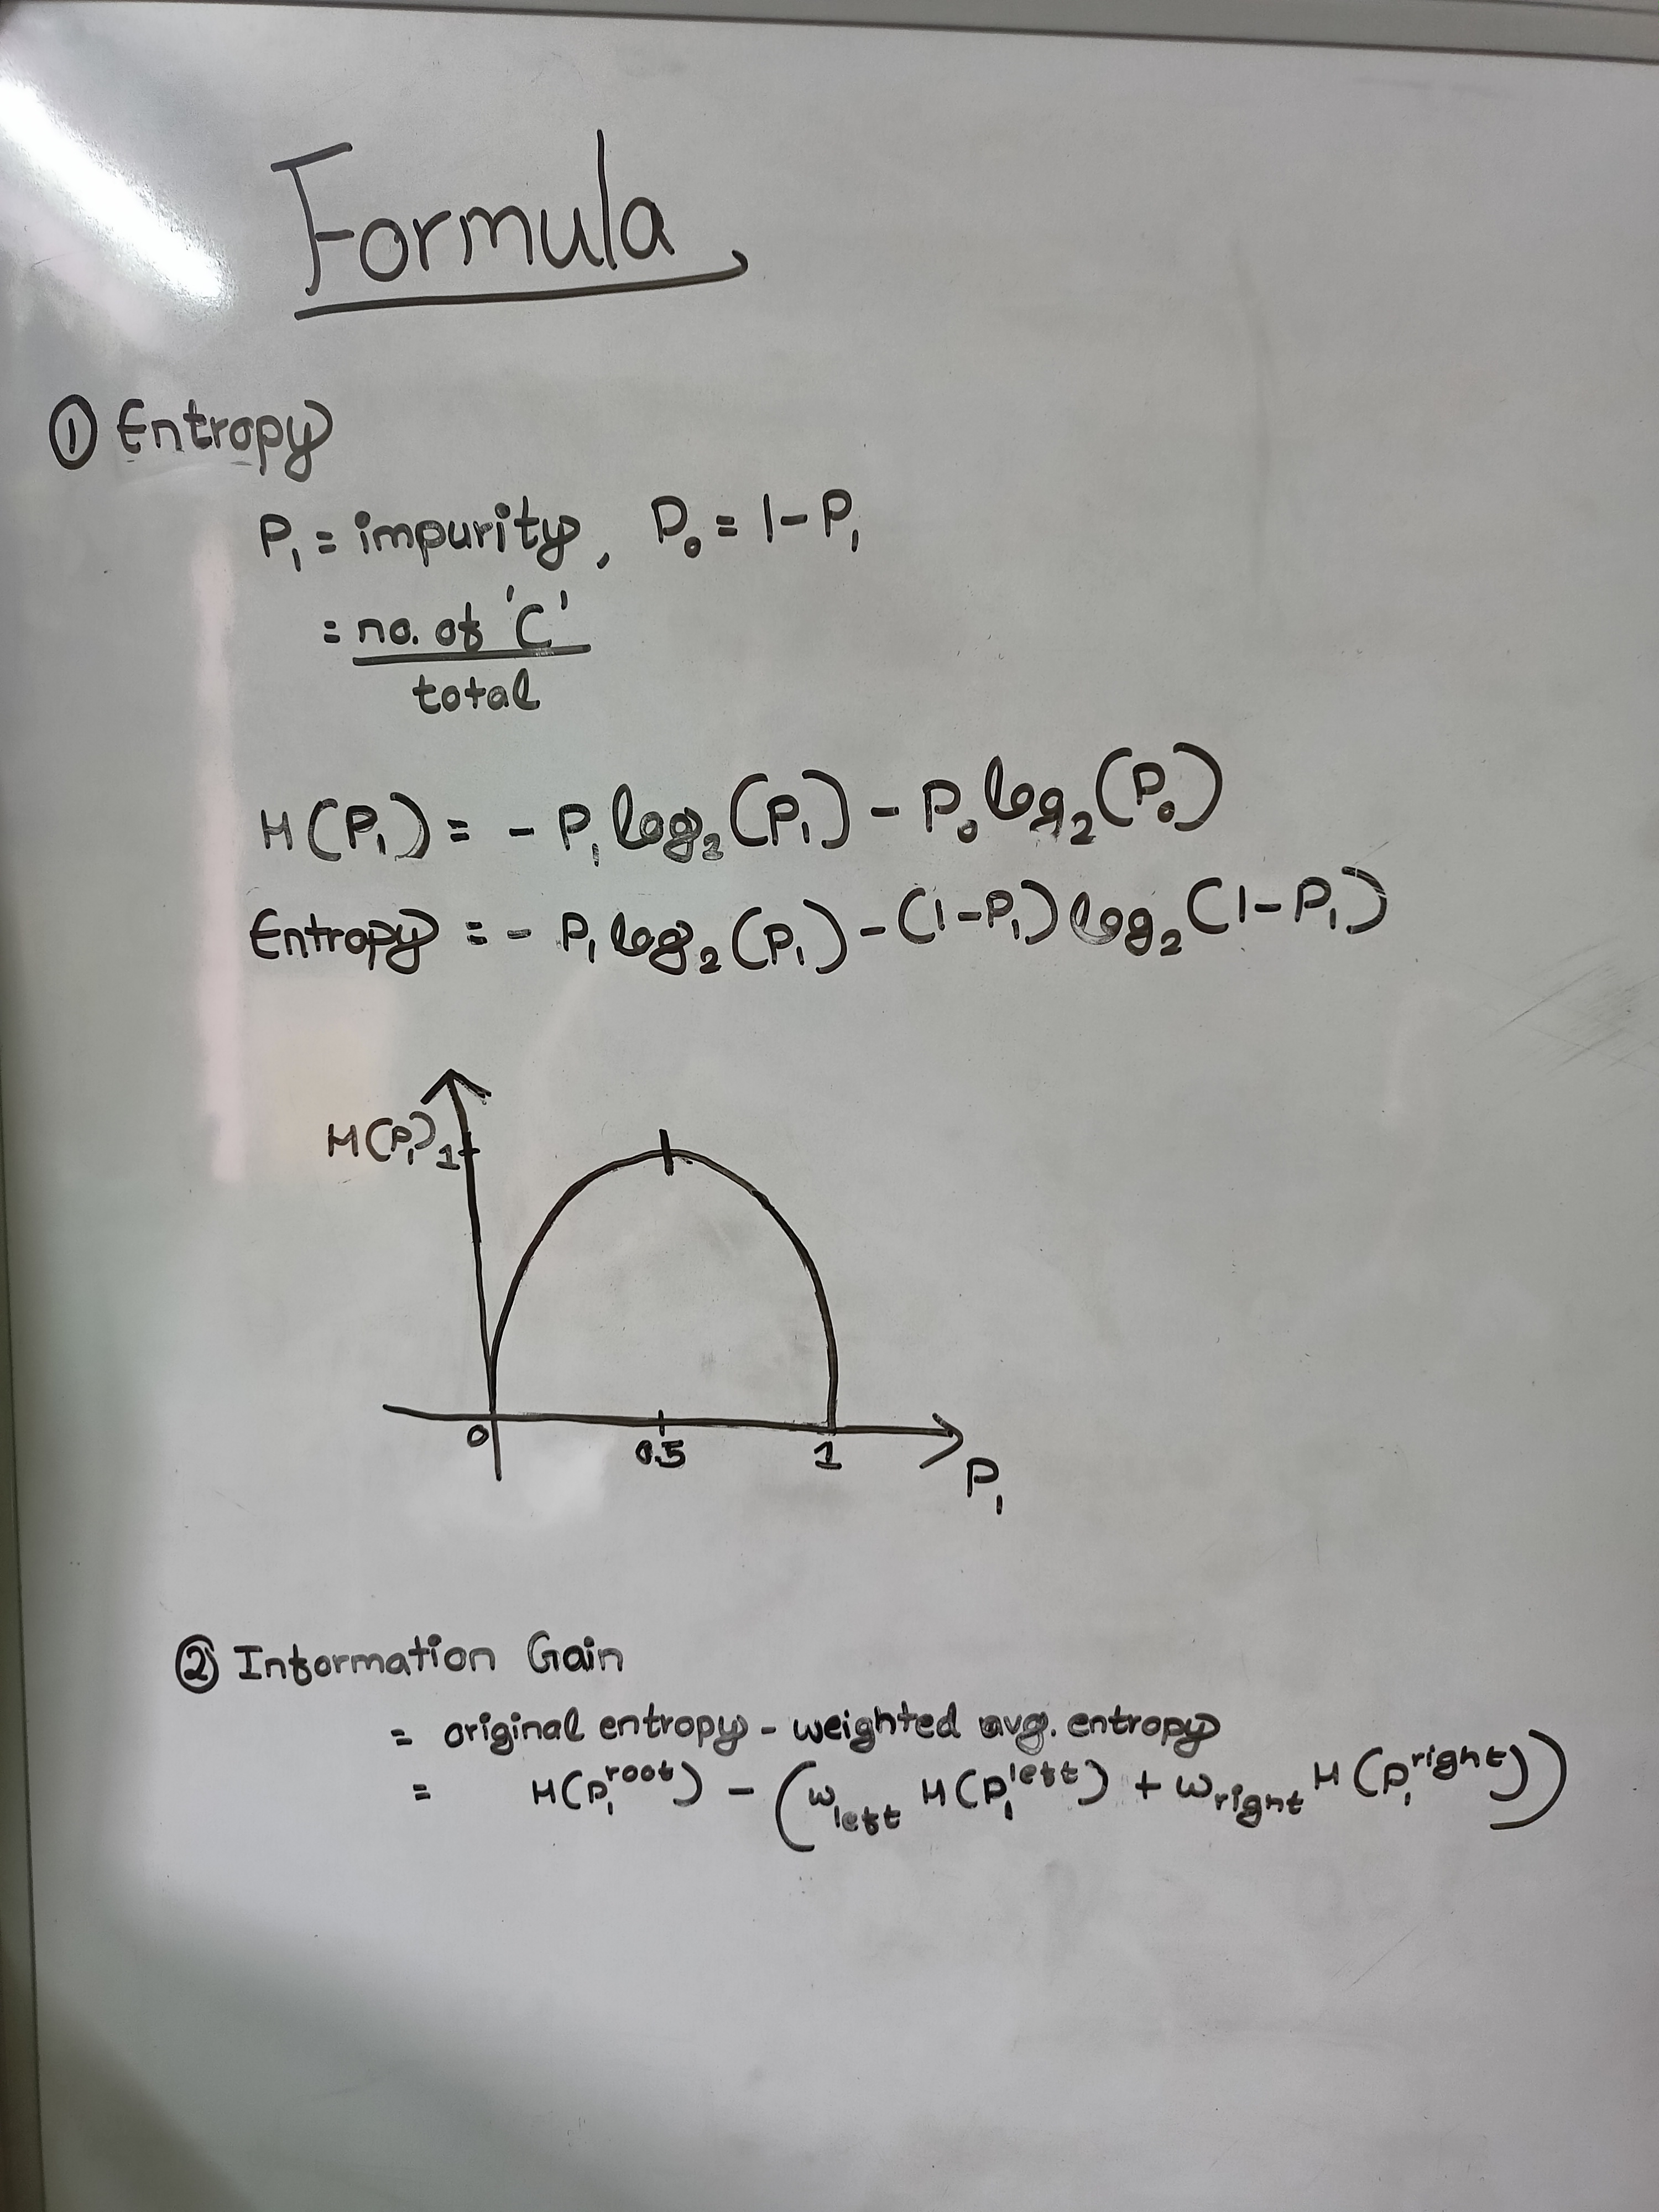 Formula
① Entropy
P₁ = impurity, P₀ = 1 - P₁
= no. of 'C'
total
H(P₁) = - P₁ log₂(P₁) - P₀ log₂(P₀)
Entropy = - P₁ log₂(P₁) - (1-P₁) log₂(1-P₁)
H(P₁) 1
0 0.5 1
P₁
② Information Gain
= original entropy - weighted avg. entropy
= H(P₁^root) - (w_left H(P₁^left) + w_right H(P₁^right))